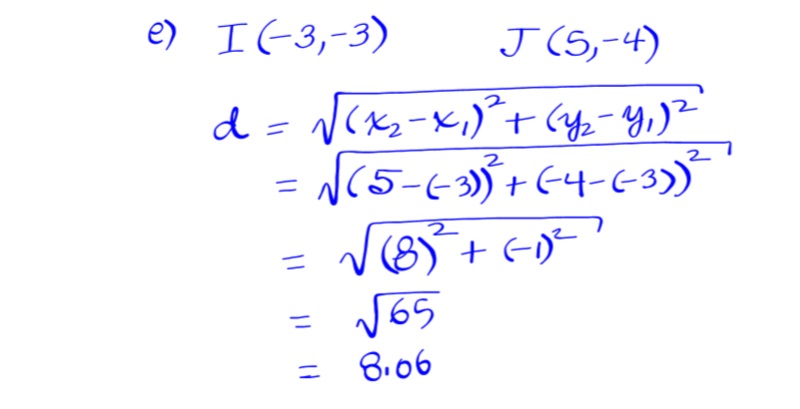 e) I(-3,-3) J(5,-4)
d = √(x₂-x₁)²+(y₂-y₁)²
= √(5-(-3))²+(-4-(-3))²
= √(8)²+(-1)²
= √65
= 8.06